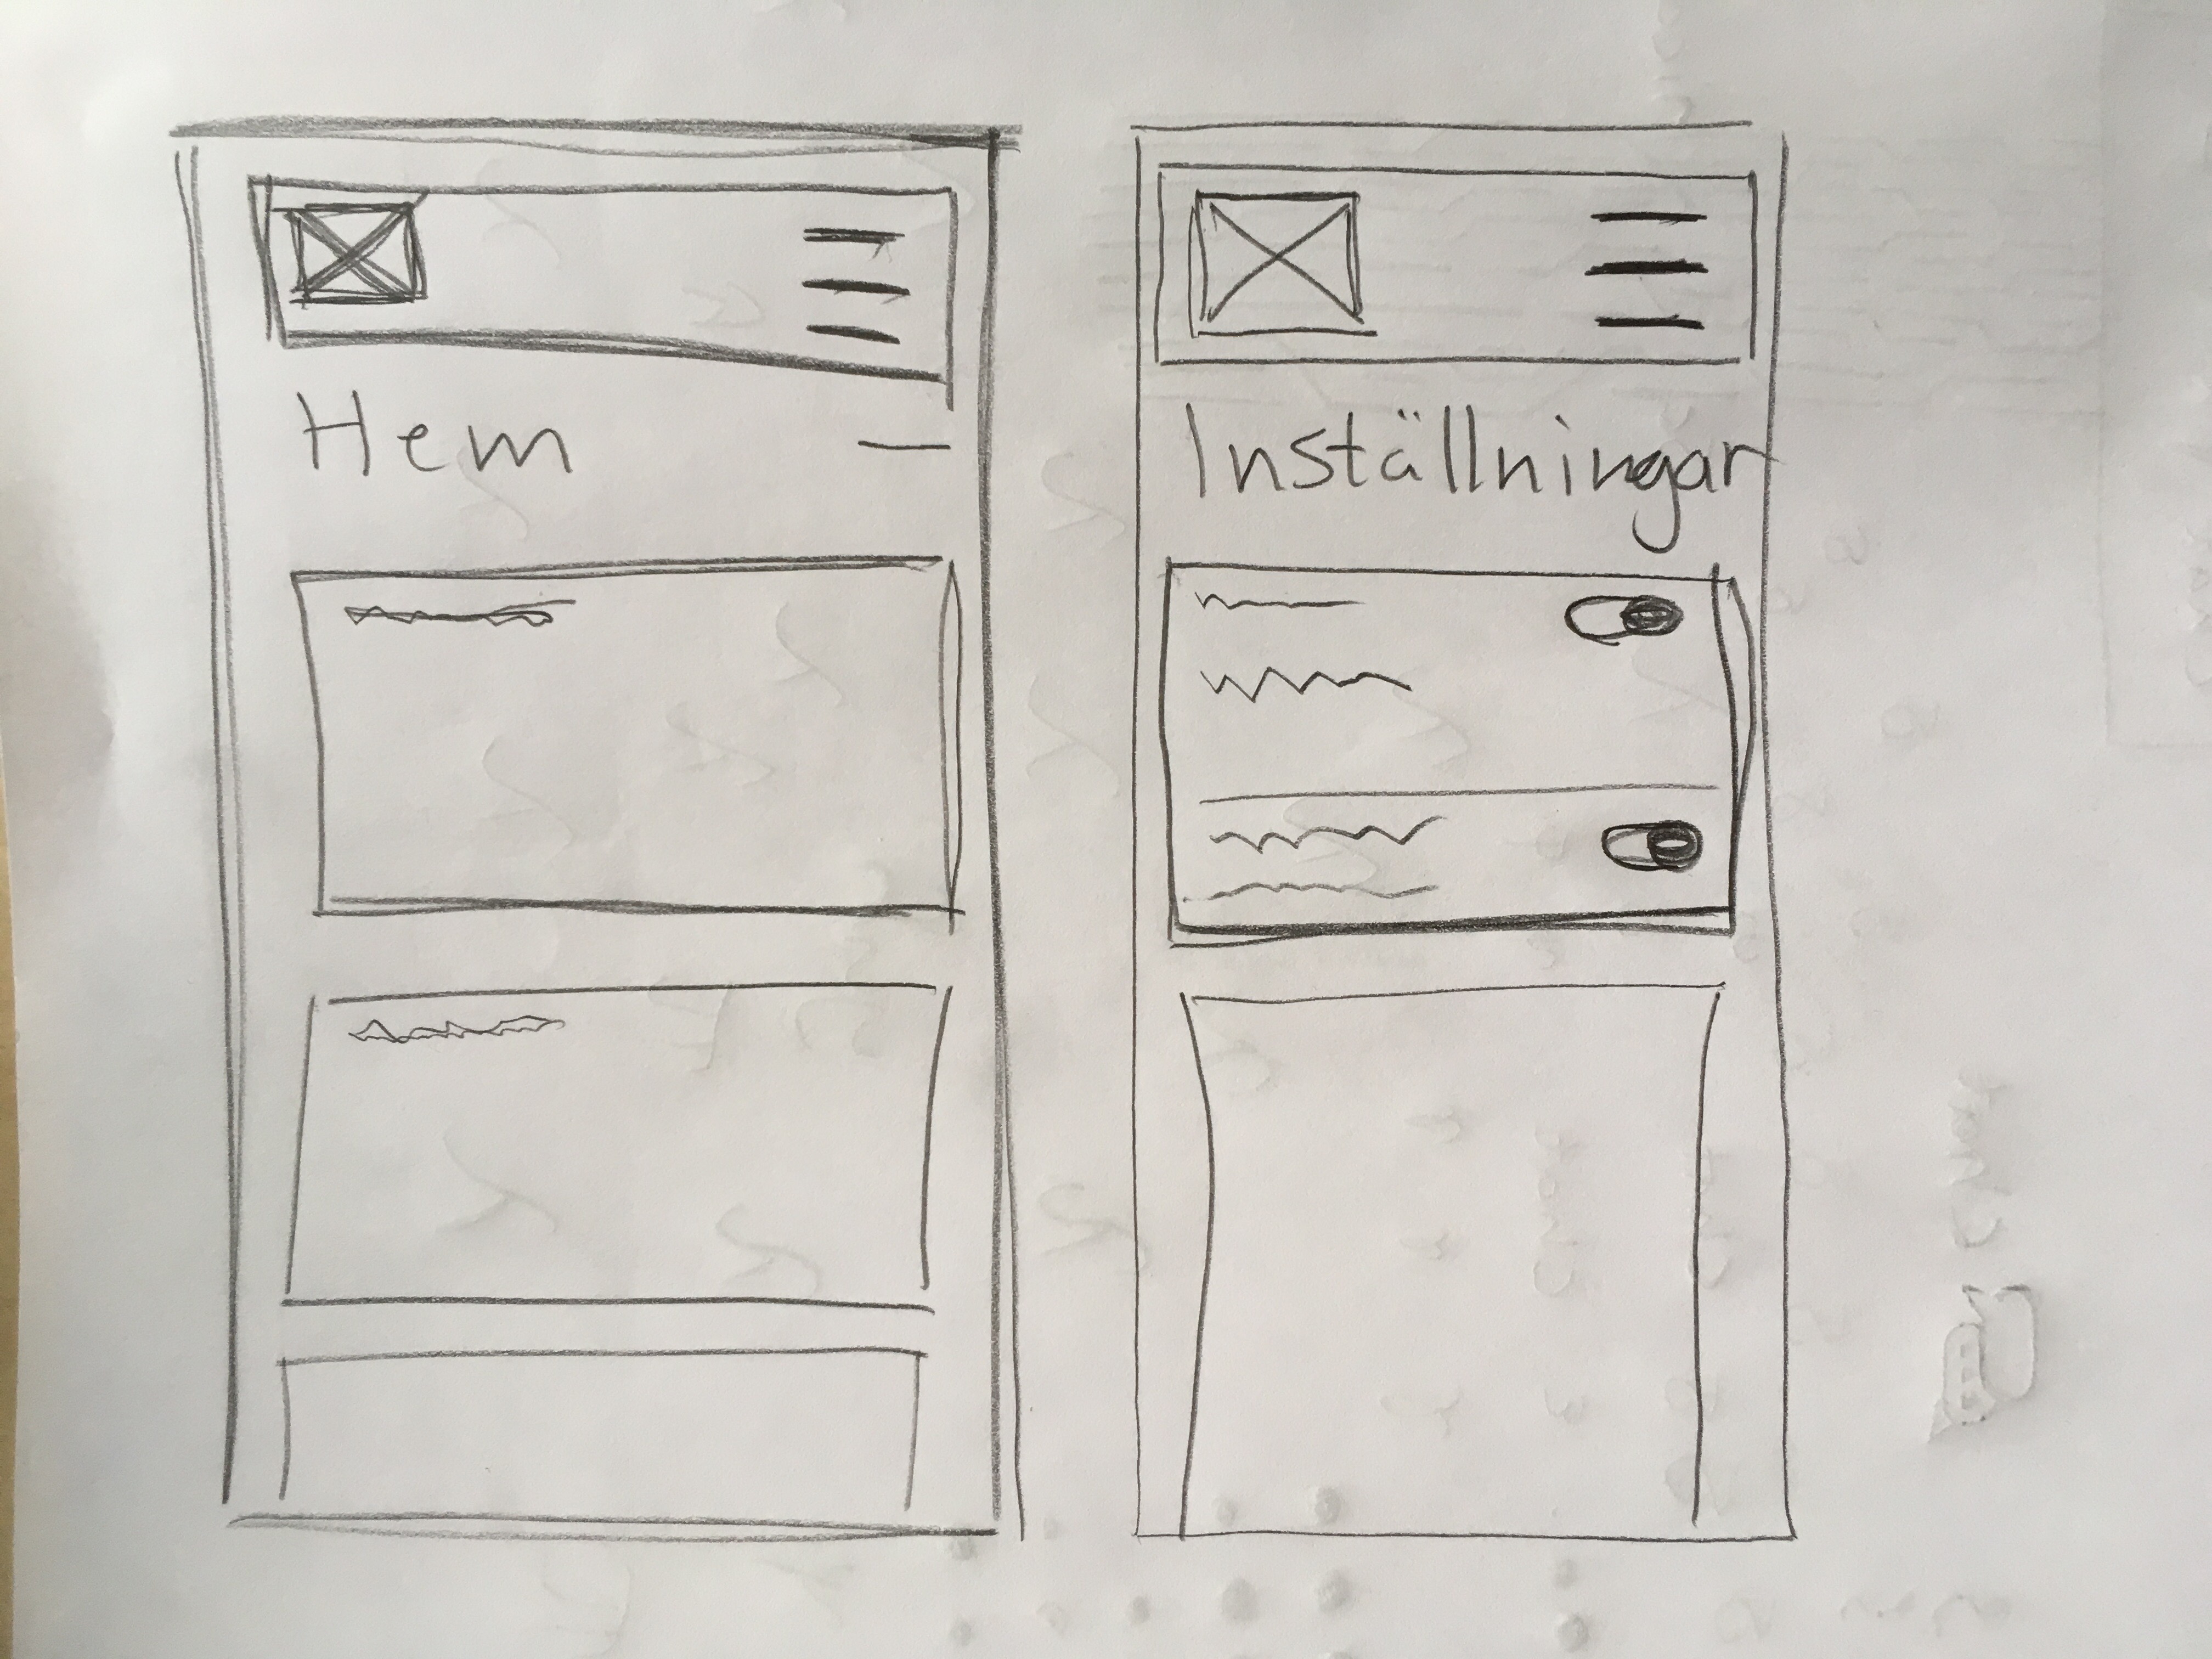 Hem
Inställningar